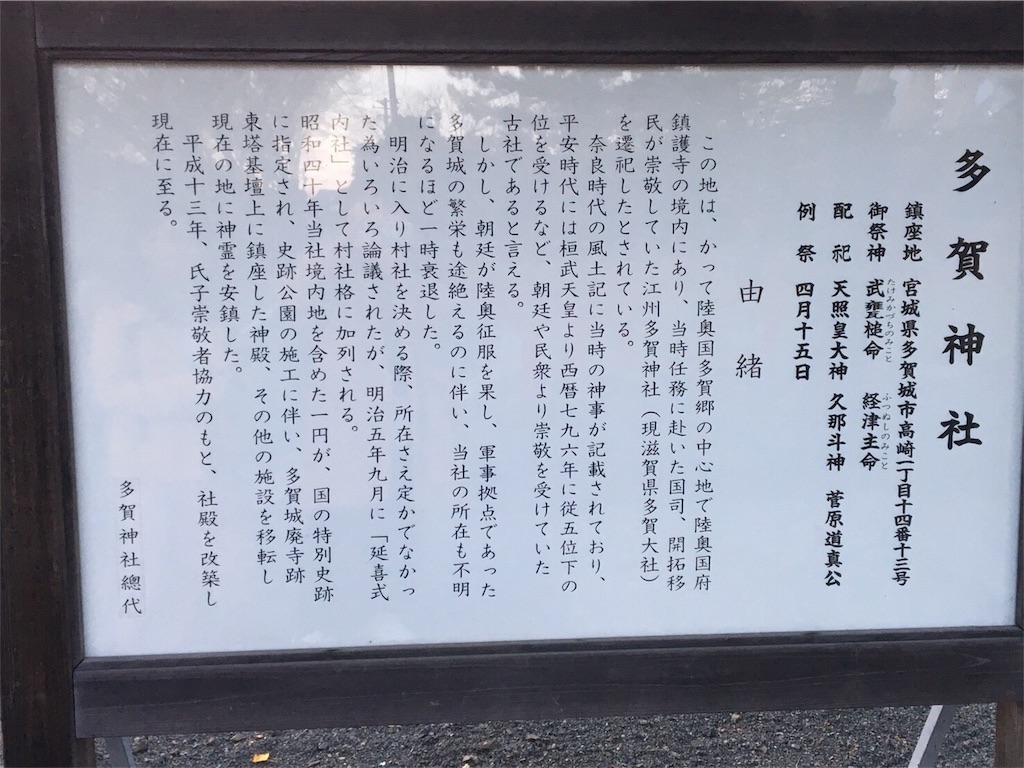 多賀神社
鎮座地 宮城県多賀城市高崎一丁目十四番十三号
御祭神 武甕槌命 経津主命
たけみかづちのみこと ふつぬしのみこと
配祀 天照皇大神 久那斗神 菅原道真公
例祭 四月十五日
由緒
この地は、かって陸奥国多賀郷の中心地で陸奥国府
鎮護寺の境内にあり、当時任務に赴いた国司、開拓移
民が崇敬していた江州多賀神社（現滋賀県多賀大社）
を遷祀したとされている。
奈良時代の風土記に当時の神事が記載されており、
平安時代には桓武天皇より西暦七九六年に従五位下の
位を受けるなど、朝廷や民衆より崇敬を受けていた
古社であると言える。
しかし、朝廷が陸奥征服を果し、軍事拠点であった
多賀城の繁栄も途絶えるのに伴い、当社の所在も不明
になるほど一時衰退した。
明治に入り村社を決める際、所在さえ定かでなかっ
た為いろいろ論議されたが、明治五年九月に「延喜式
内社」として村社格に加列される。
昭和四十年当社境内地を含めた一円が、国の特別史跡
に指定され、史跡公園の施工に伴い、多賀城廃寺跡
東塔基壇上に鎮座した神殿、その他の施設を移転し
現在の地に神霊を安鎮した。
平成十三年、氏子崇敬者協力のもと、社殿を改築し
現在に至る。
多賀神社總代